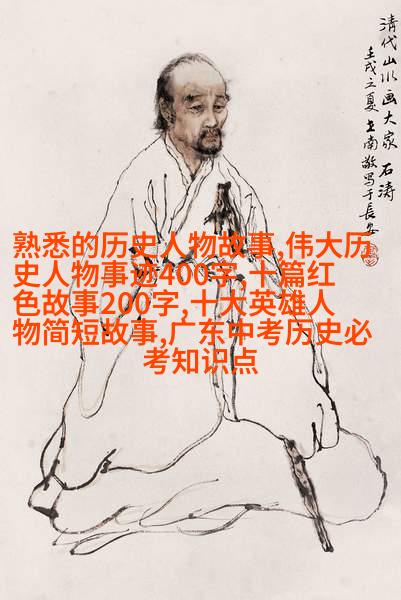 清代山水画大家 石涛
壬戌之夏 南敬写于長安
熟悉的历史人物故事,伟大历
史人物事迹400字,十篇红
色故事200字,十大英雄人
物简短故事,广东中考历史必
考知识点